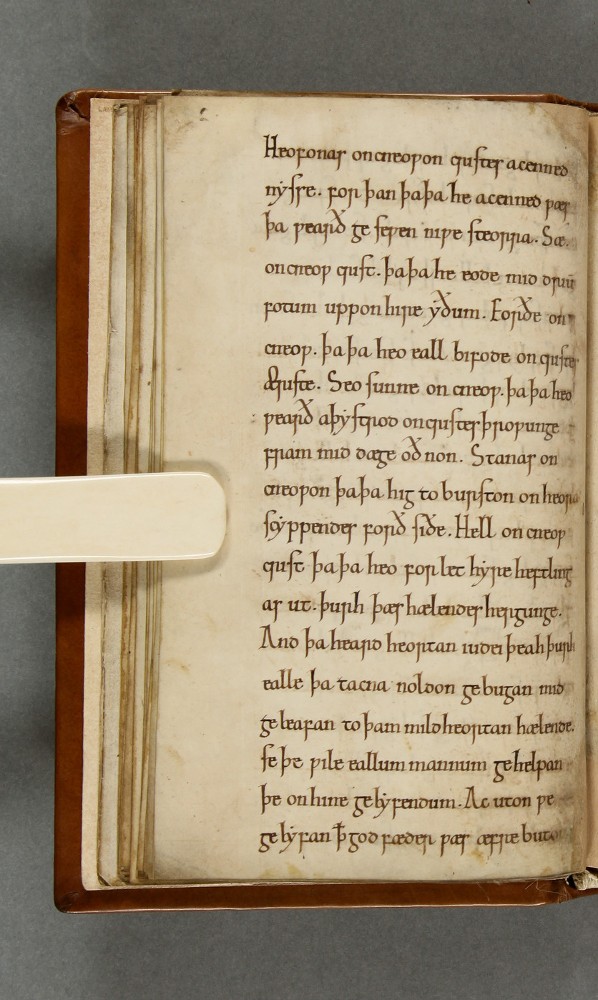 Heofonas oncneopon cristes acenned
nysse. for þan þaþa he acenned pæs
þa pearð ge sepen nipe steorra. Sæ
oncneop crist. þaþa he eode mid driū
fotum uppon hire yðum. Eorðe on
cneop. þaþa heo eall bifode on cristes
æriste. Seo sunne on cneop. þaþa heo
pearð aþystrod oncristes þropunge
fram mid dæge oð non. Stanas on
cneopon þaþa hig to burston on heora
scyppendes forð siðe. Hell on cneop
crist þaþa heo for let hyre heftling
as ut. þurh þæs hælendes hergunge.
And þa heard heortan iudei þeah þurh
ealle þa tacna noldon ge bugan mid
ge leafan to þam mild heortan hælende.
se þe pile eallum mannum ge helpan
þe on hine ge lyfendum. Ac uton pe
ge lyfan ꝥ god fæder pæs æfre buton